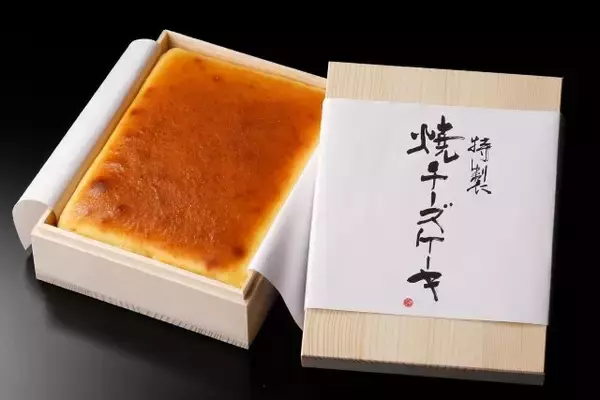 特製
焼チーズケーキ